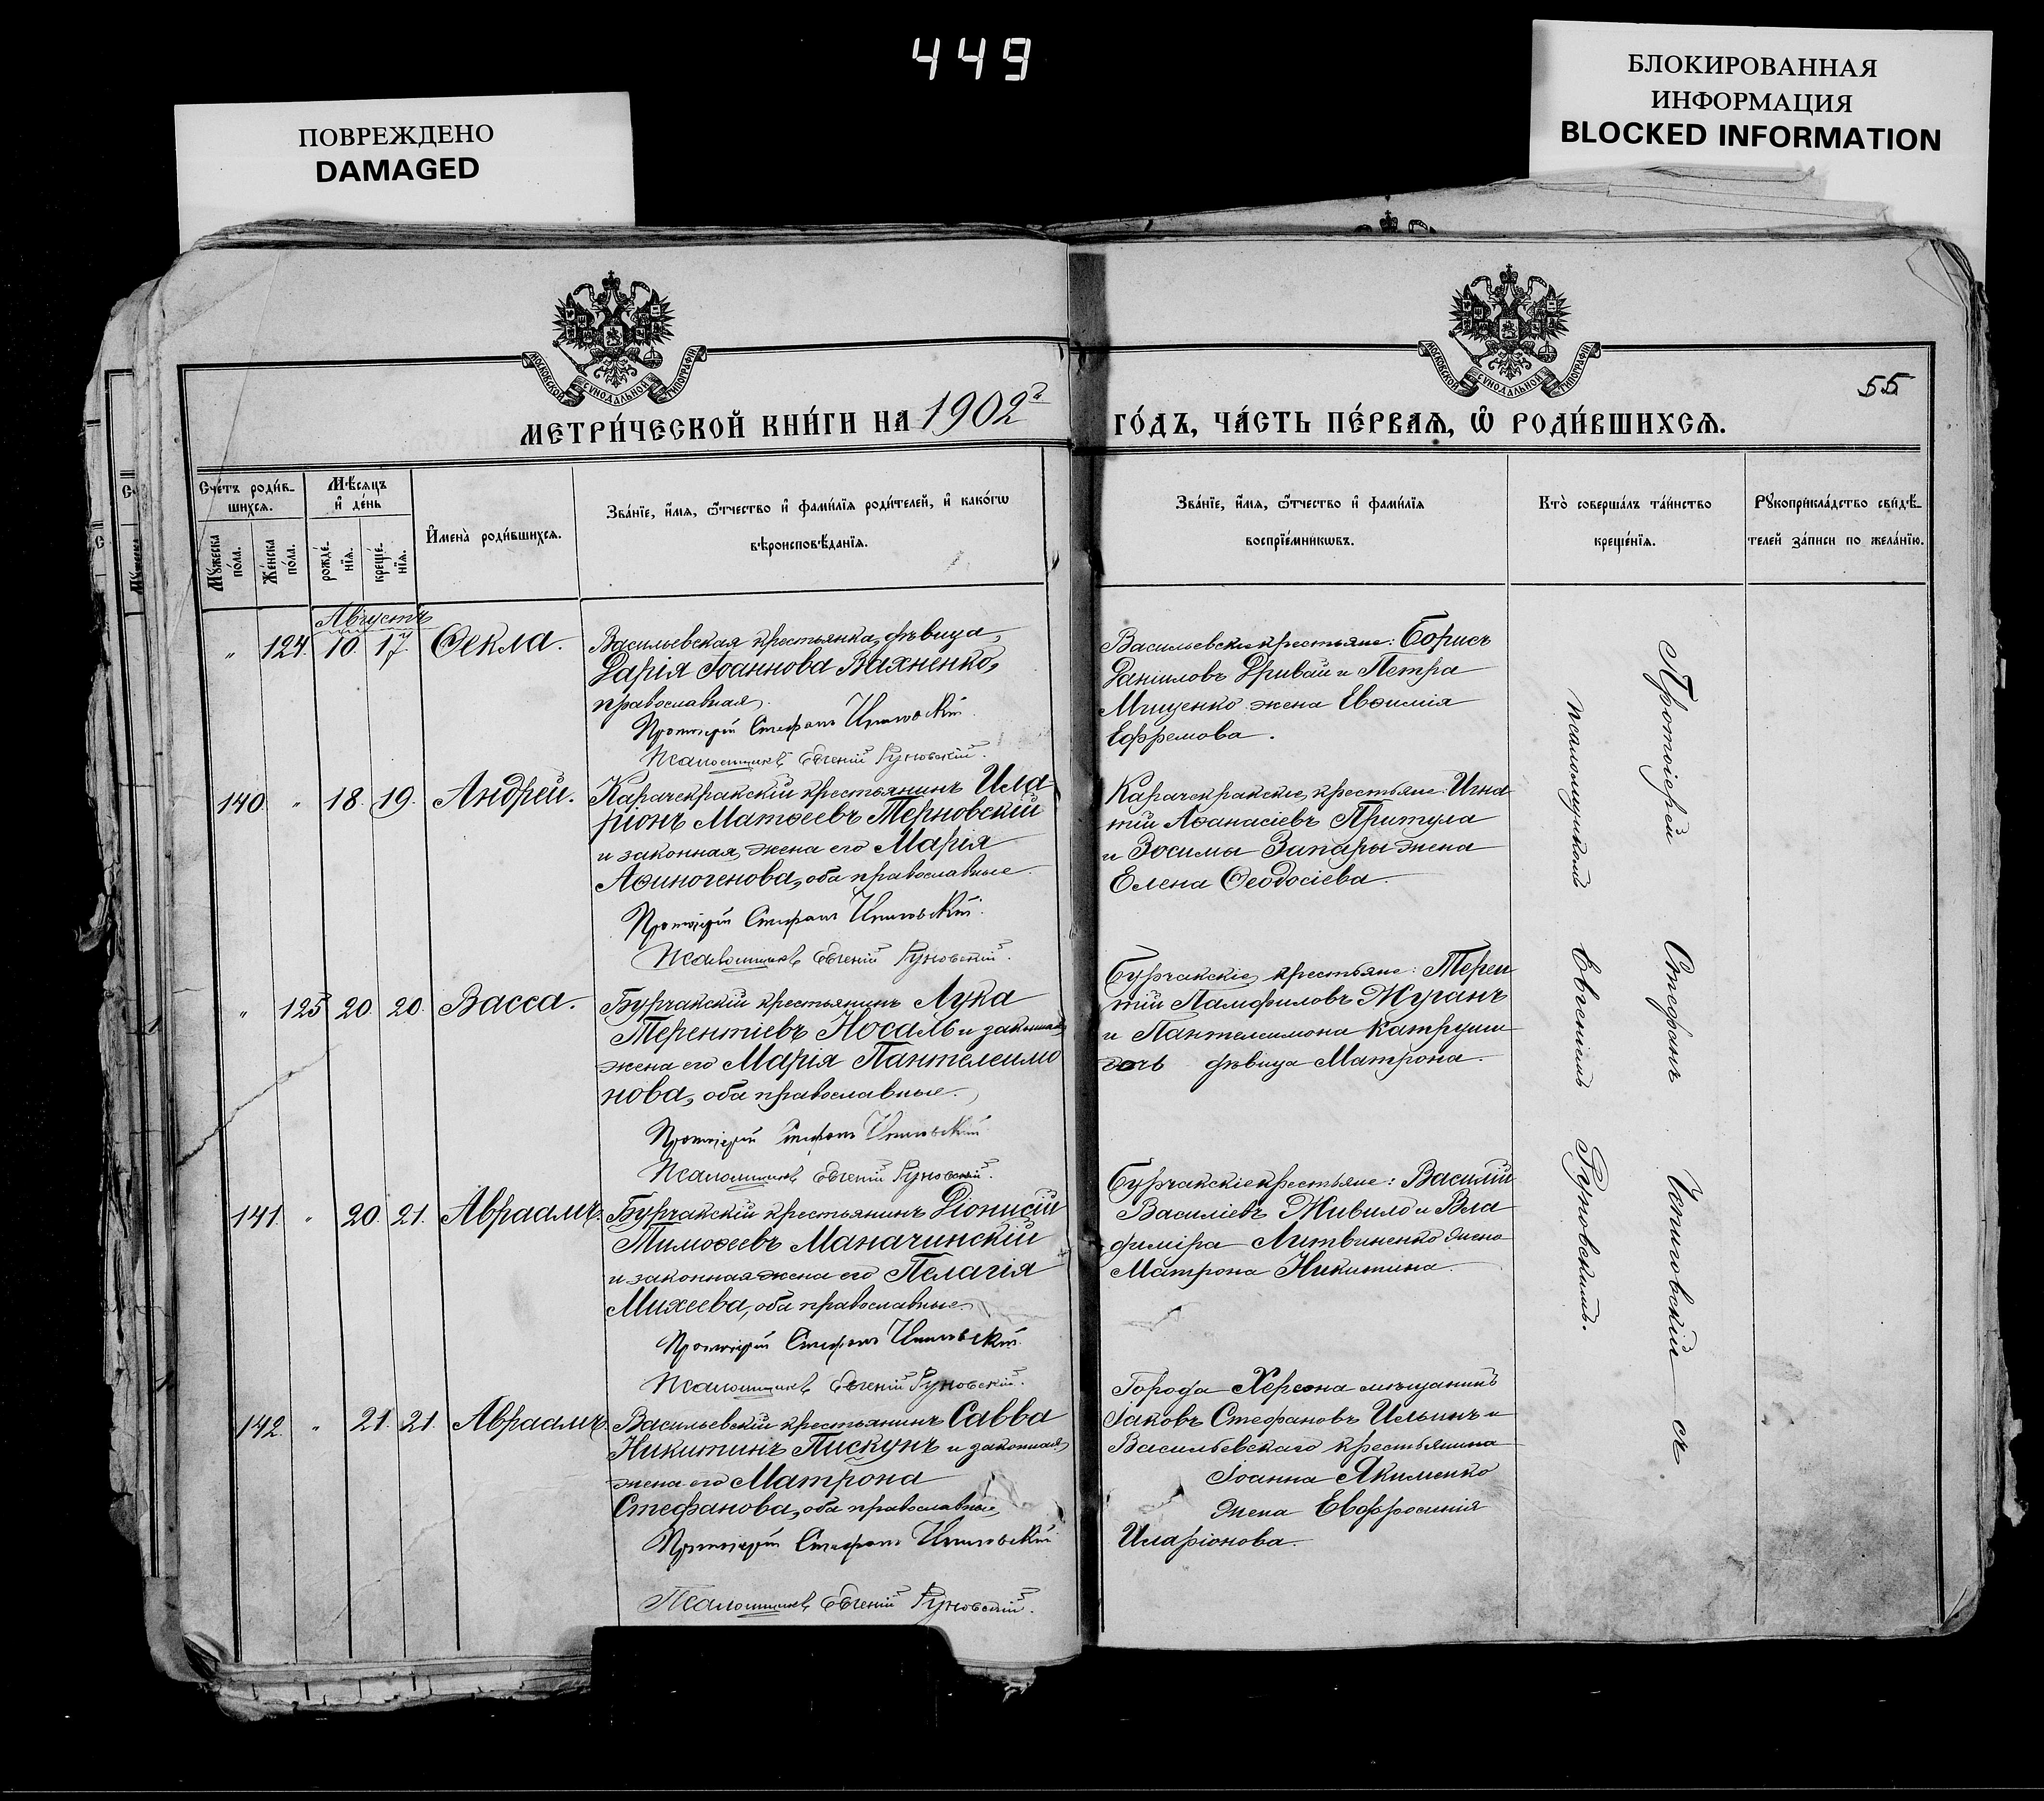 449
ПОВРЕЖДЕНО
DAMAGED
БЛОКИРОВАННАЯ
ИНФОРМАЦИЯ
BLOCKED INFORMATION
МОСКОВСКОЙ СУНОДАЛЬНОЙ ТИПОГРАФІИ
МОСКОВСКОЙ СУНОДАЛЬНОЙ ТИПОГРАФІИ
55
МЕТРИ́ЧЕСКОЙ КНИ́ГИ НА 1902й ГО́ДЪ, ЧА́СТЬ ПЕ́РВАѦ, Ѡ҆ РОДИ́ВШИХСѦ.
Сче́тъ роди́в-
шихсѧ.
Мꙋ́жеска по́ла.
Же́нска по́ла.
Мѣ́сѧцъ
и҆ де́нь
рожде́-
нїѧ.
креще́-
нїѧ.
И҆мена̀ роди́вшихсѧ.
Зва́нїе, и҆́мѧ, ѻ҆́тчество и҆ фами́лїѧ роди́телей, и҆ како́гѡ
вѣроисповѣ́данїѧ.
Зва́нїе, и҆́мѧ, ѻ҆́тчество и҆ фами́лїѧ
воспрїе́мникѡвъ.
Кто̀ соверша́лъ та́инство
креще́нїѧ.
Рꙋкоприкла́дство свидѣ́-
телей за́писи по жела́нїю.
Августъ
" 124. 10. 17. Ѳекла.
Васильевская крестьянка, дѣвица,
Дарія Іоаннова Вахненко,
православная.
Протоіерей Стефанъ Чепиговскій
Псаломщикъ Евгеній Руновскій.
Васильевскіе крестьяне: Борисъ
Даніиловъ Дривай и Петра
Мищенко жена Евѳимія
Ефремова.
140. " 18. 19. Андрей.
Карачекракскій крестьянинъ Ила-
ріонъ Матѳеевъ Терновскій
и законная жена его Марія
Аѳиногенова, оба православные.
Протоіерей Стефанъ Чепиговскій.
Псаломщикъ Евгеній Руновскій.
Карачекракскіе крестьяне: Игна
тій Аѳанасіевъ Притула
и Зосимы Запары жена
Елена Ѳеодосіева.
" 125 20. 20. Васса.
Бурчакскій крестьянинъ Лука
Терентіевъ Носаль и законная
жена его Марія Пантелеимо
нова, оба православные.
Протоіерей Стефанъ Чепиговскій
Псаломщикъ Евгеній Руновскій.
Бурчакскіе крестьяне: Терен
тій Памфиловъ Жуганъ
и Пантелеимона Катруши
дочь дѣвица Матрона.
141. " 20. 21. Авраамъ.
Бурчакскій крестьянинъ Діонисій
Тимоѳеевъ Маначинскій
и законная жена его Пелагія
Михеева, оба православные
Протоіерей Стефанъ Чепиговскій.
Псаломщикъ Евгеній Руновскій.
Бурчакскіе крестьяне: Василій
Василіевъ Живило и Вла
диміра Литвиненко жена
Матрона Никитина.
142. " 21. 21. Авраамъ.
Васильевскій крестьянинъ Савва
Никитинъ Пискунъ и законная
жена его Матрона
Стефанова, оба православные,
Протоіерей Стефанъ Чепиговскій
Псаломщикъ Евгеній Руновскій.
Города Херсона мѣщанинъ
Іаковъ Стефановъ Ильинъ и
Васильевскаго крестьянина
Іоанна Якименко
жена Евфросинія
Иларіонова.
Протоіерей Стефанъ Чепиговскій съ
псаломщикомъ Евгеніемъ Руновскимъ.